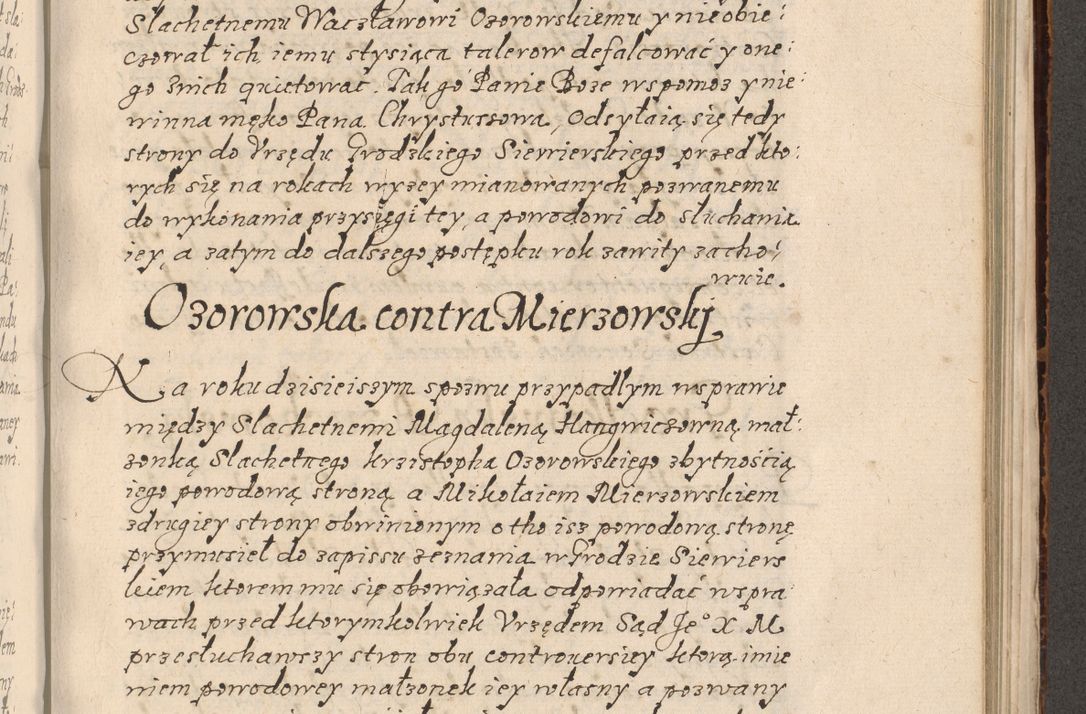 Slachetnemu Waczławowi Ozorowskiemu y nieobie:
czował ich iemu stysiąca talerow defalcować y one:
go znich quietować. Tak go Panie Boze wspomoz y nie:
winna męko Pana Chrystussowa, Odsyłaią się tedy
strony do Vrzędu Grodzkiego Siewierskiego przed kto:
rych się na rokach wyzey mianowanych pozwanemu
do wykonania przysięgi tey, a powodowi do słuchania
iey, a zatym do dalszego postępku rok zawity zacho:
wuie.
Ozorowska contra Mierzowskj
Na roku dzisieiszym spozwu przypadłym wsprawie
między Slachetnemi Magdaleną Hangwiczowną mał:
zonką Slachetnego krzistopha Ozorowskiego zbytnością
iego powodową stroną a Mikołaiem Mierzowskiem
zdrugiey strony obwinionym o tho isz powodową stronę
przymusieł do zapissu zeznania w Grodzie Siewiers
kiem ktorem mu się obowiązała odpowiadać wspra
wach przed ktorymkolwiek Vrzędem Sąd Je° X M
przesłuchawszy stron obu controuersiey ktorą imie
niem powodowey małzonek iey własny a pozwany